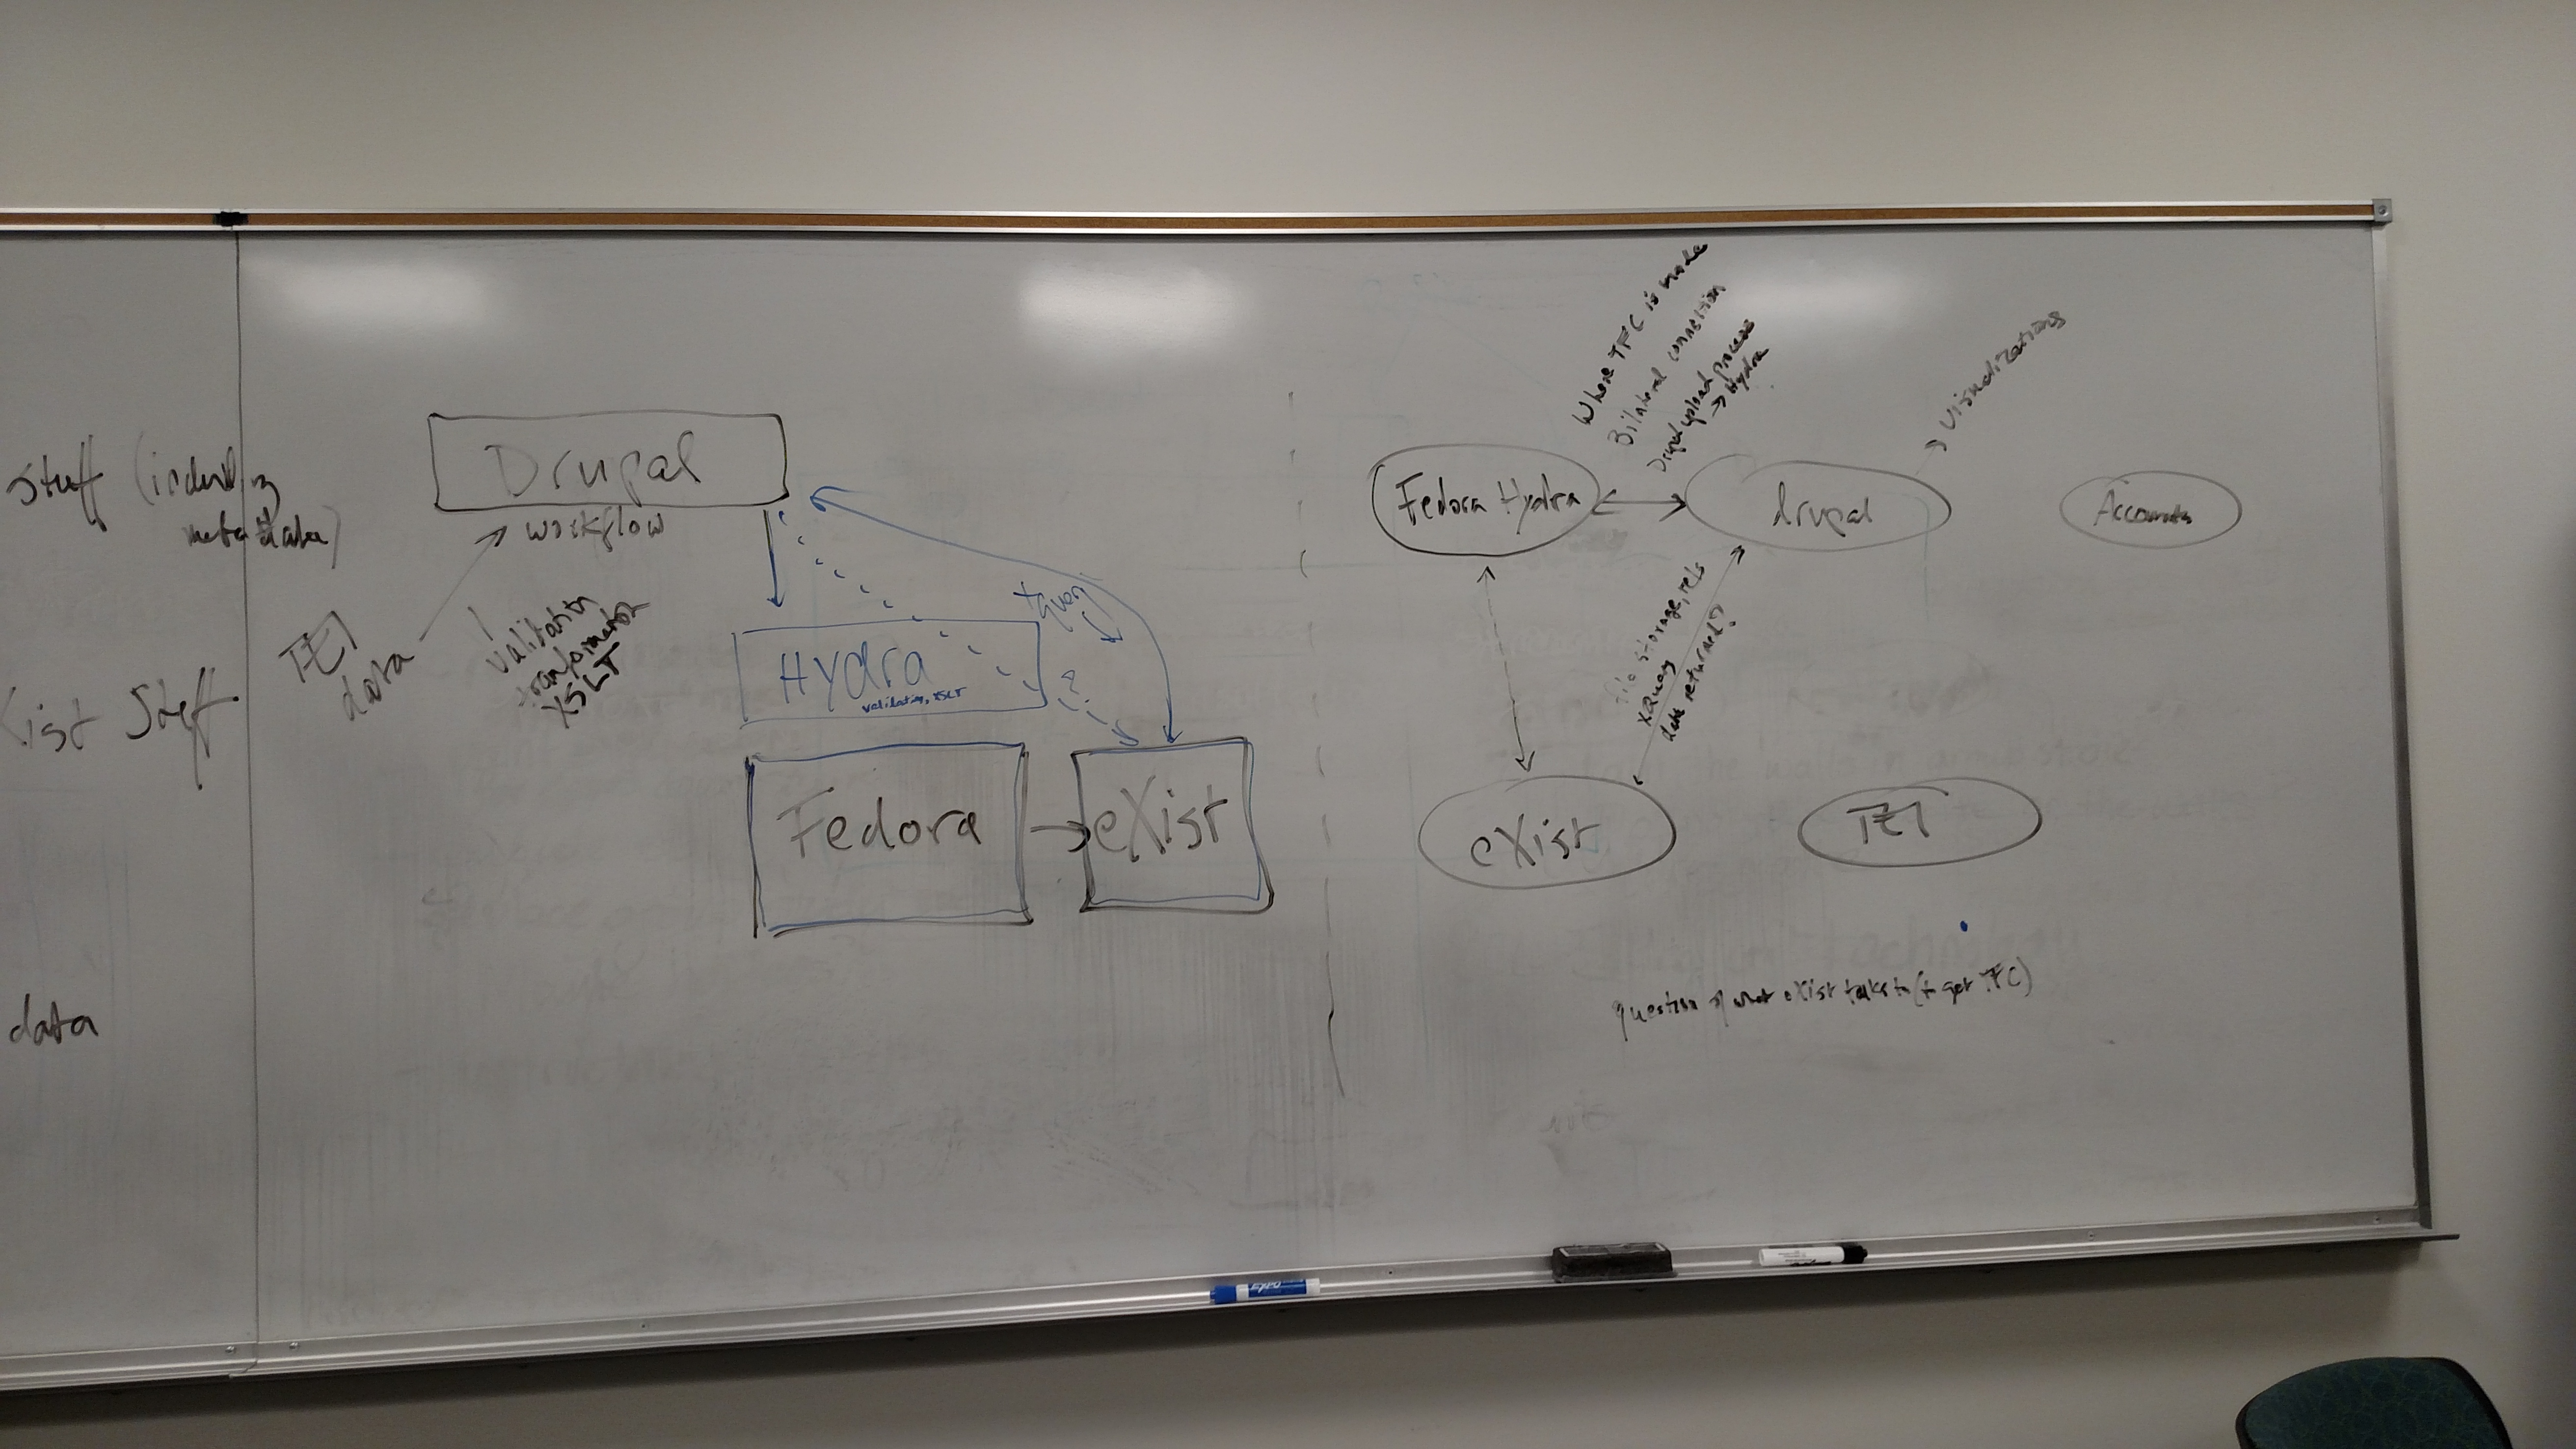 stuff (including
metadata)
xist Stuff
data
Drupal
workflow
TEI
data
validation
transformation
XSLT
Hydra
validation, XSLT
xquery
?
Fedora
eXist
Where TFC is made
Bilateral connection
Drupal upload process
→ Hydra
Visualizations
Fedora Hydra
drupal
file storage, rels
XQuery
data returned?
eXist
TEI
question of what eXist talks to (to get TFC)
EXPO